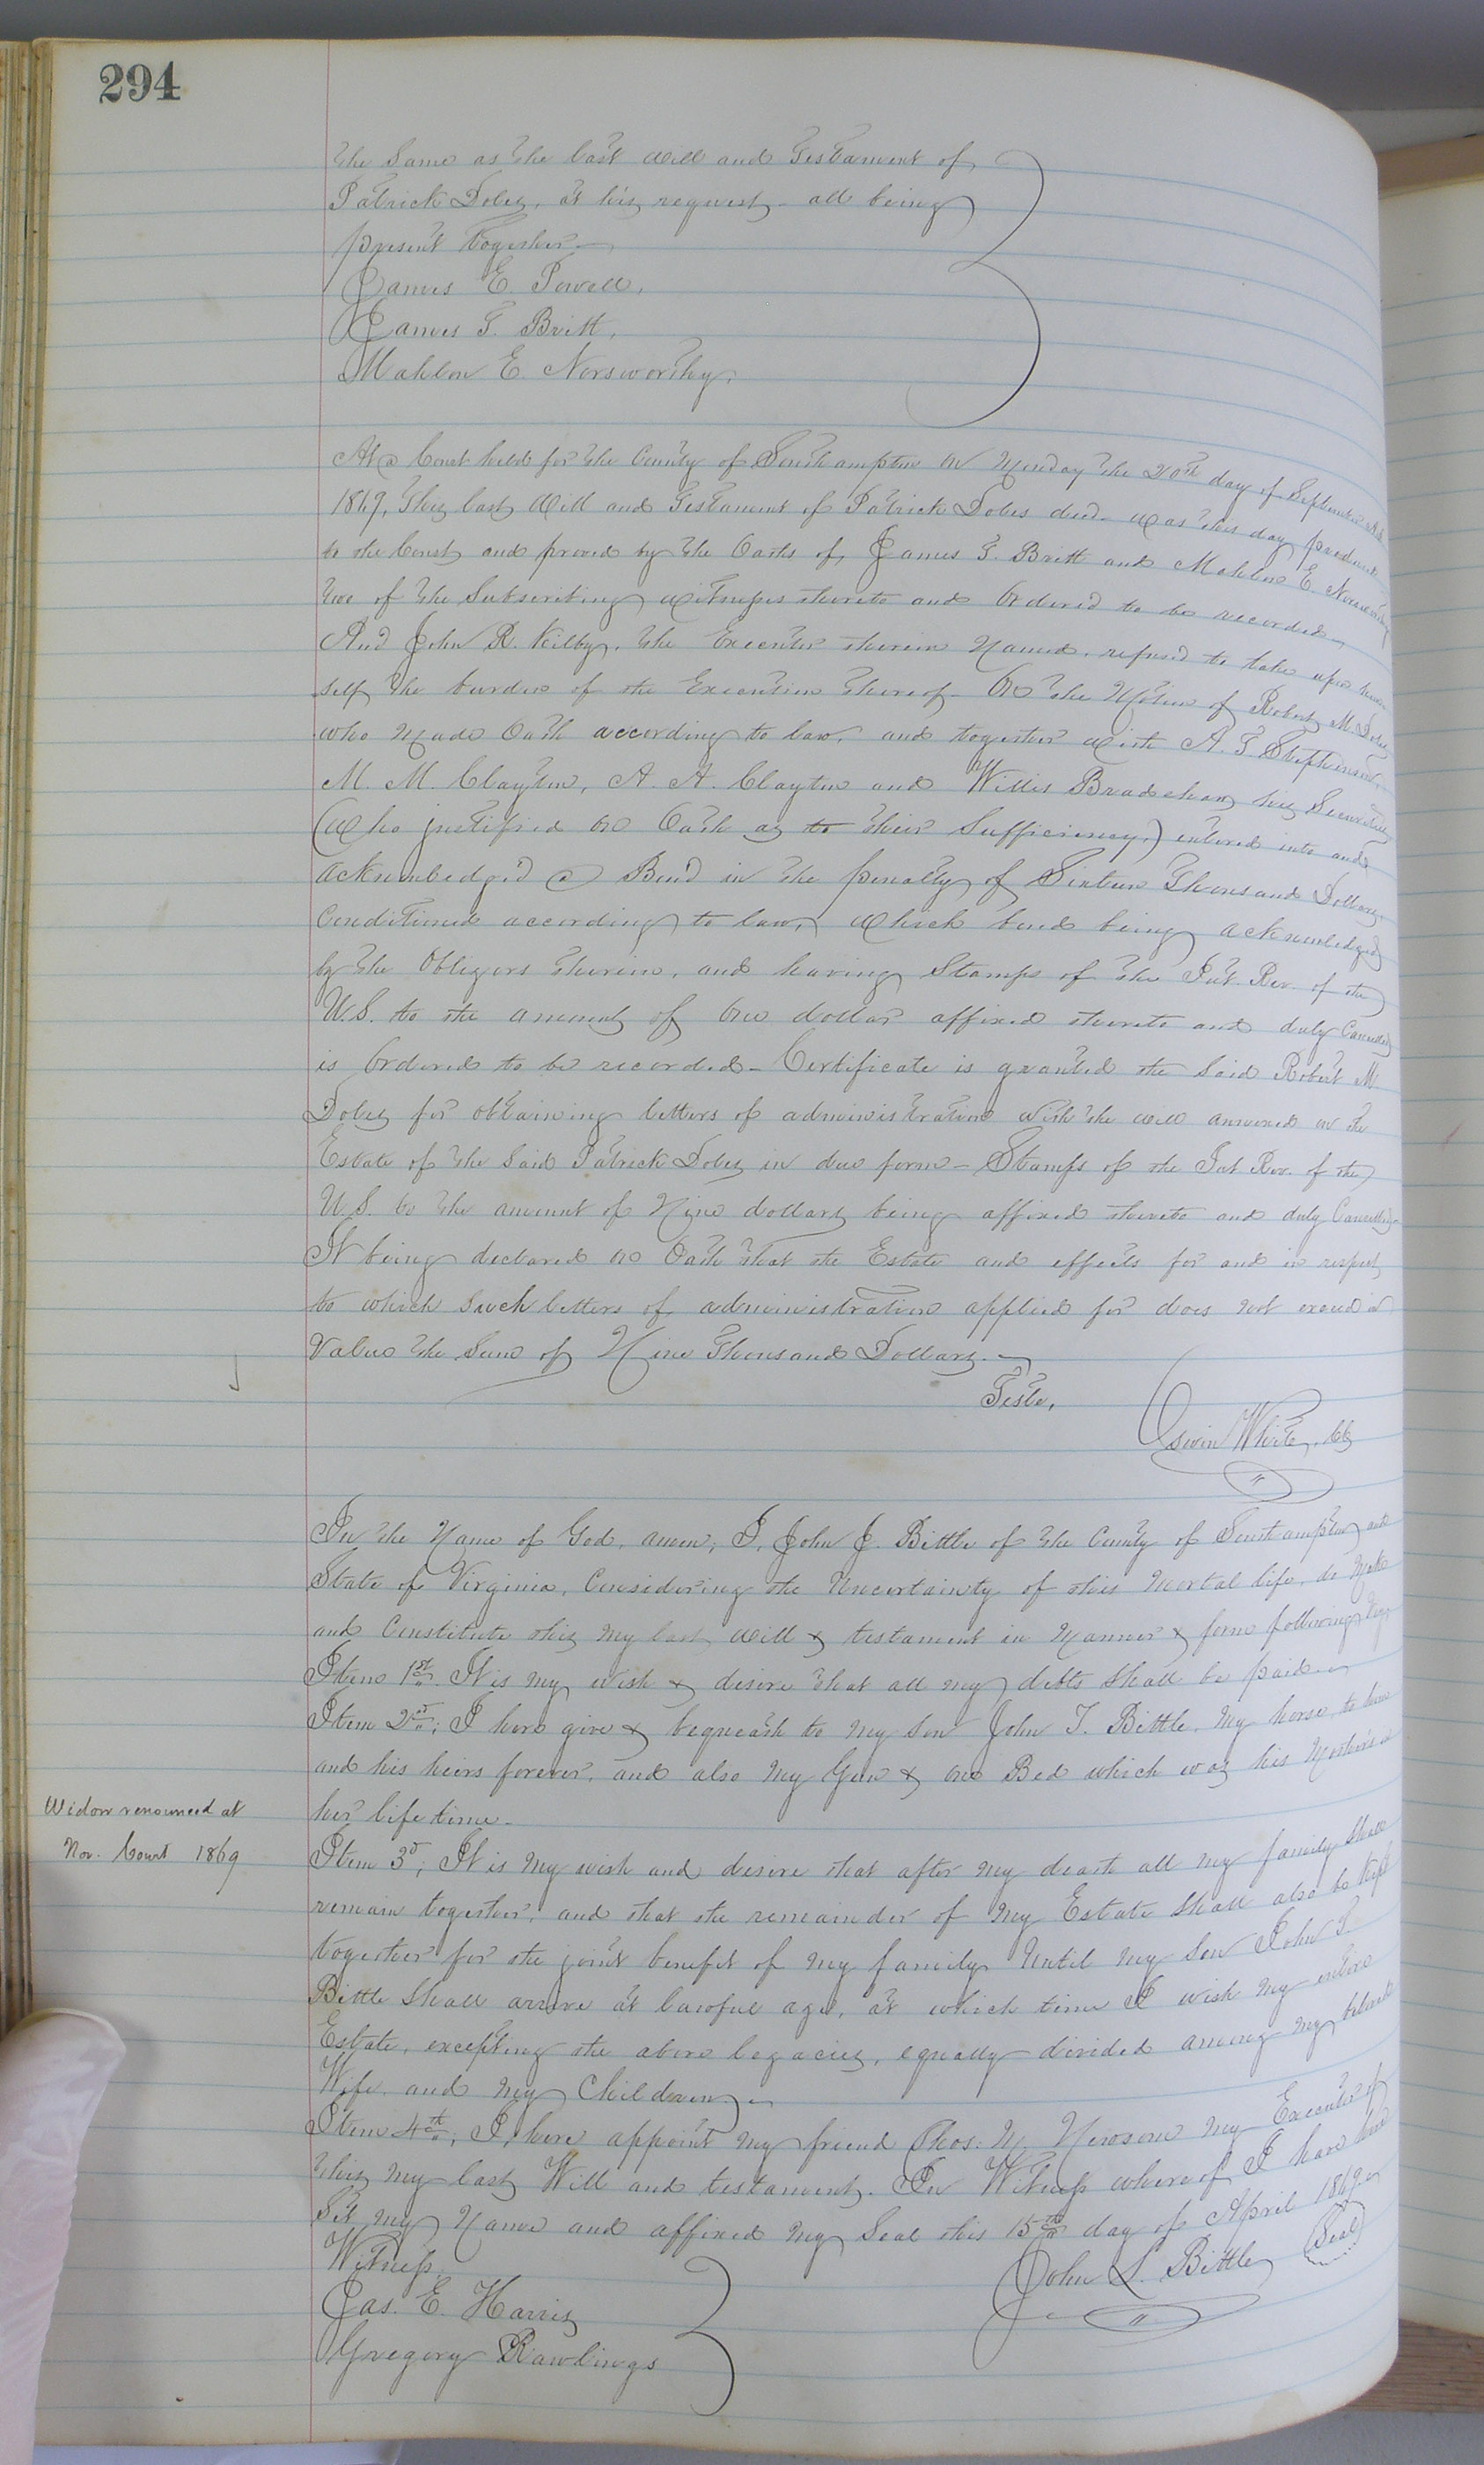 294
the same as the last will and Testament of
Patrick Doles, at his request, all being
present together.
James E. Powell,
James T. Britt,
Mahlon E. Norsworthy,
At a Court held for the County of Southampton on Monday the 20th day of September
1869, This last Will and Testament of Patrick Doles decd. was this day produced
to the Court and proved by the Oaths of James T. Britt and Mahlon E. Norsworthy
two of the Subscribing witnesses thereto and Ordered to be recorded.
And John R. Kilby, the Executor therein Named, refused to take upon him
self the burden of the Execution thereof. On the Motion of Robert M. Doles
who Made Oath according to law, and together with A. T. Stephenson,
M. M. Clayton, A. A. Clayton and Willis Bradshaw his Securities
(Who justified on Oath as to their Sufficiency,) entered into and
acknowledged a Bond in the penalty of Sixteen Thousand Dollars
Conditioned according to law, which bond being acknowledged
by the Obligors therein, and having Stamps of the Int. Rev. of the
U.S. to the amount of One dollar affixed thereto and duly Cancelled
is Ordered to be recorded - Certificate is granted the Said Robert M
Doles for obtaining letters of administration with the will annexed on the
Estate of the Said Patrick Doles in due form - Stamps of the Int Rev. of the
U.S. to the amount of Nine dollars being affixed thereto and duly Cancelled.
It being declared on Oath that the Estate and effects for and in respect
to which Such letters of administration applied for does not exceed in
Value the Sum of Nine Thousand Dollars.
Teste,
Edwin White, Clk
In the Name of God, amen, I, John J. Bittle of the County of Southampton and
State of Virginia, Considering the Uncertainty of this Mortal life, do Make
and Constitute this my last will & testament in Manner & form following
Item 1st. It is my wish & desire that all my debts shall be paid.
Item 2d; I here give & bequeath to my Son John T. Bittle, my horse, to him
and his heirs forever, and also My Gun & one Bed which was his Mother's in
her life time.
Widow renounced at
Nov. Court 1869
Item 3d; It is my wish and desire that after my death all my family shall
remain together, and that the remainder of my Estate Shall also be kept
together for the joint benefit of my family Until my Son John T
Bittle Shall arrive at lawful age, at which time I wish my entire
Estate, excepting the above legacies, equally divided among my beloved
Wife and my Children.
Item 4th; I, here appoint my friend Thos: N. Newsom my Executor of
this my last Will and testament. In Witness whereof I have here
Set my Name and affixed my Seal this 15th day of April 1869.
John L. Bittle (Seal)
Witness,
Jas. E. Harris
Gregory Rawlings